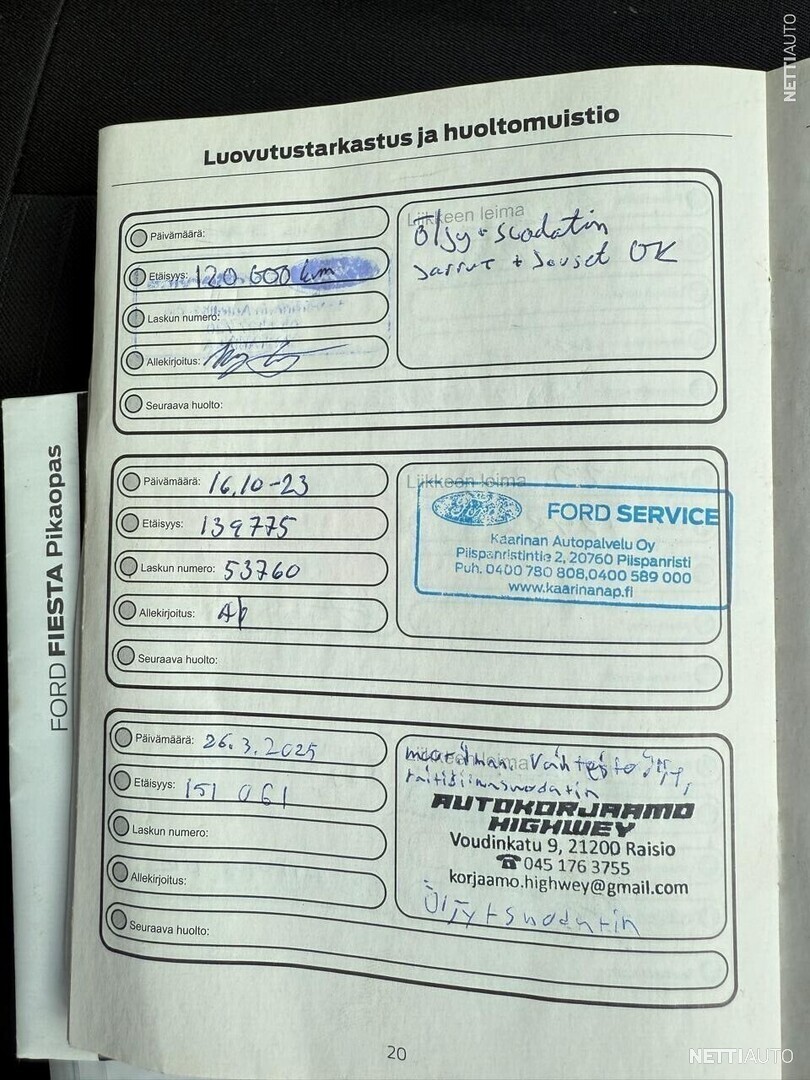 NETTIAUTO
Luovutustarkastus ja huoltomuistio
Päivämäärä:
Etäisyys: 120 600 km
Laskun numero:
Allekirjoitus:
Seuraava huolto:
Liikkeen leima
Öljy + suodatin
Jarrut + Jouset OK
Päivämäärä: 16.10-23
Etäisyys: 139775
Laskun numero: 53760
Allekirjoitus:
Seuraava huolto:
Liikkeen leima
Ford
FORD SERVICE
Kaarinan Autopalvelu Oy
Piispanristintie 2, 20760 Piispanristi
Puh. 0400 780 808,0400 589 000
www.kaarinanap.fi
Päivämäärä: 26.3.2025
Etäisyys: 151 061
Laskun numero:
Allekirjoitus:
Seuraava huolto:
Liikkeen leima
Vaihteistoöljy,
raitisilmasuodatin
AUTOKORJAAMO
HIGHWEY
Voudinkatu 9, 21200 Raisio
☎ 045 176 3755
korjaamo.highwey@gmail.com
Öljy+suodatin
FORD FIESTA Pikaopas
20
NETTIAUTO